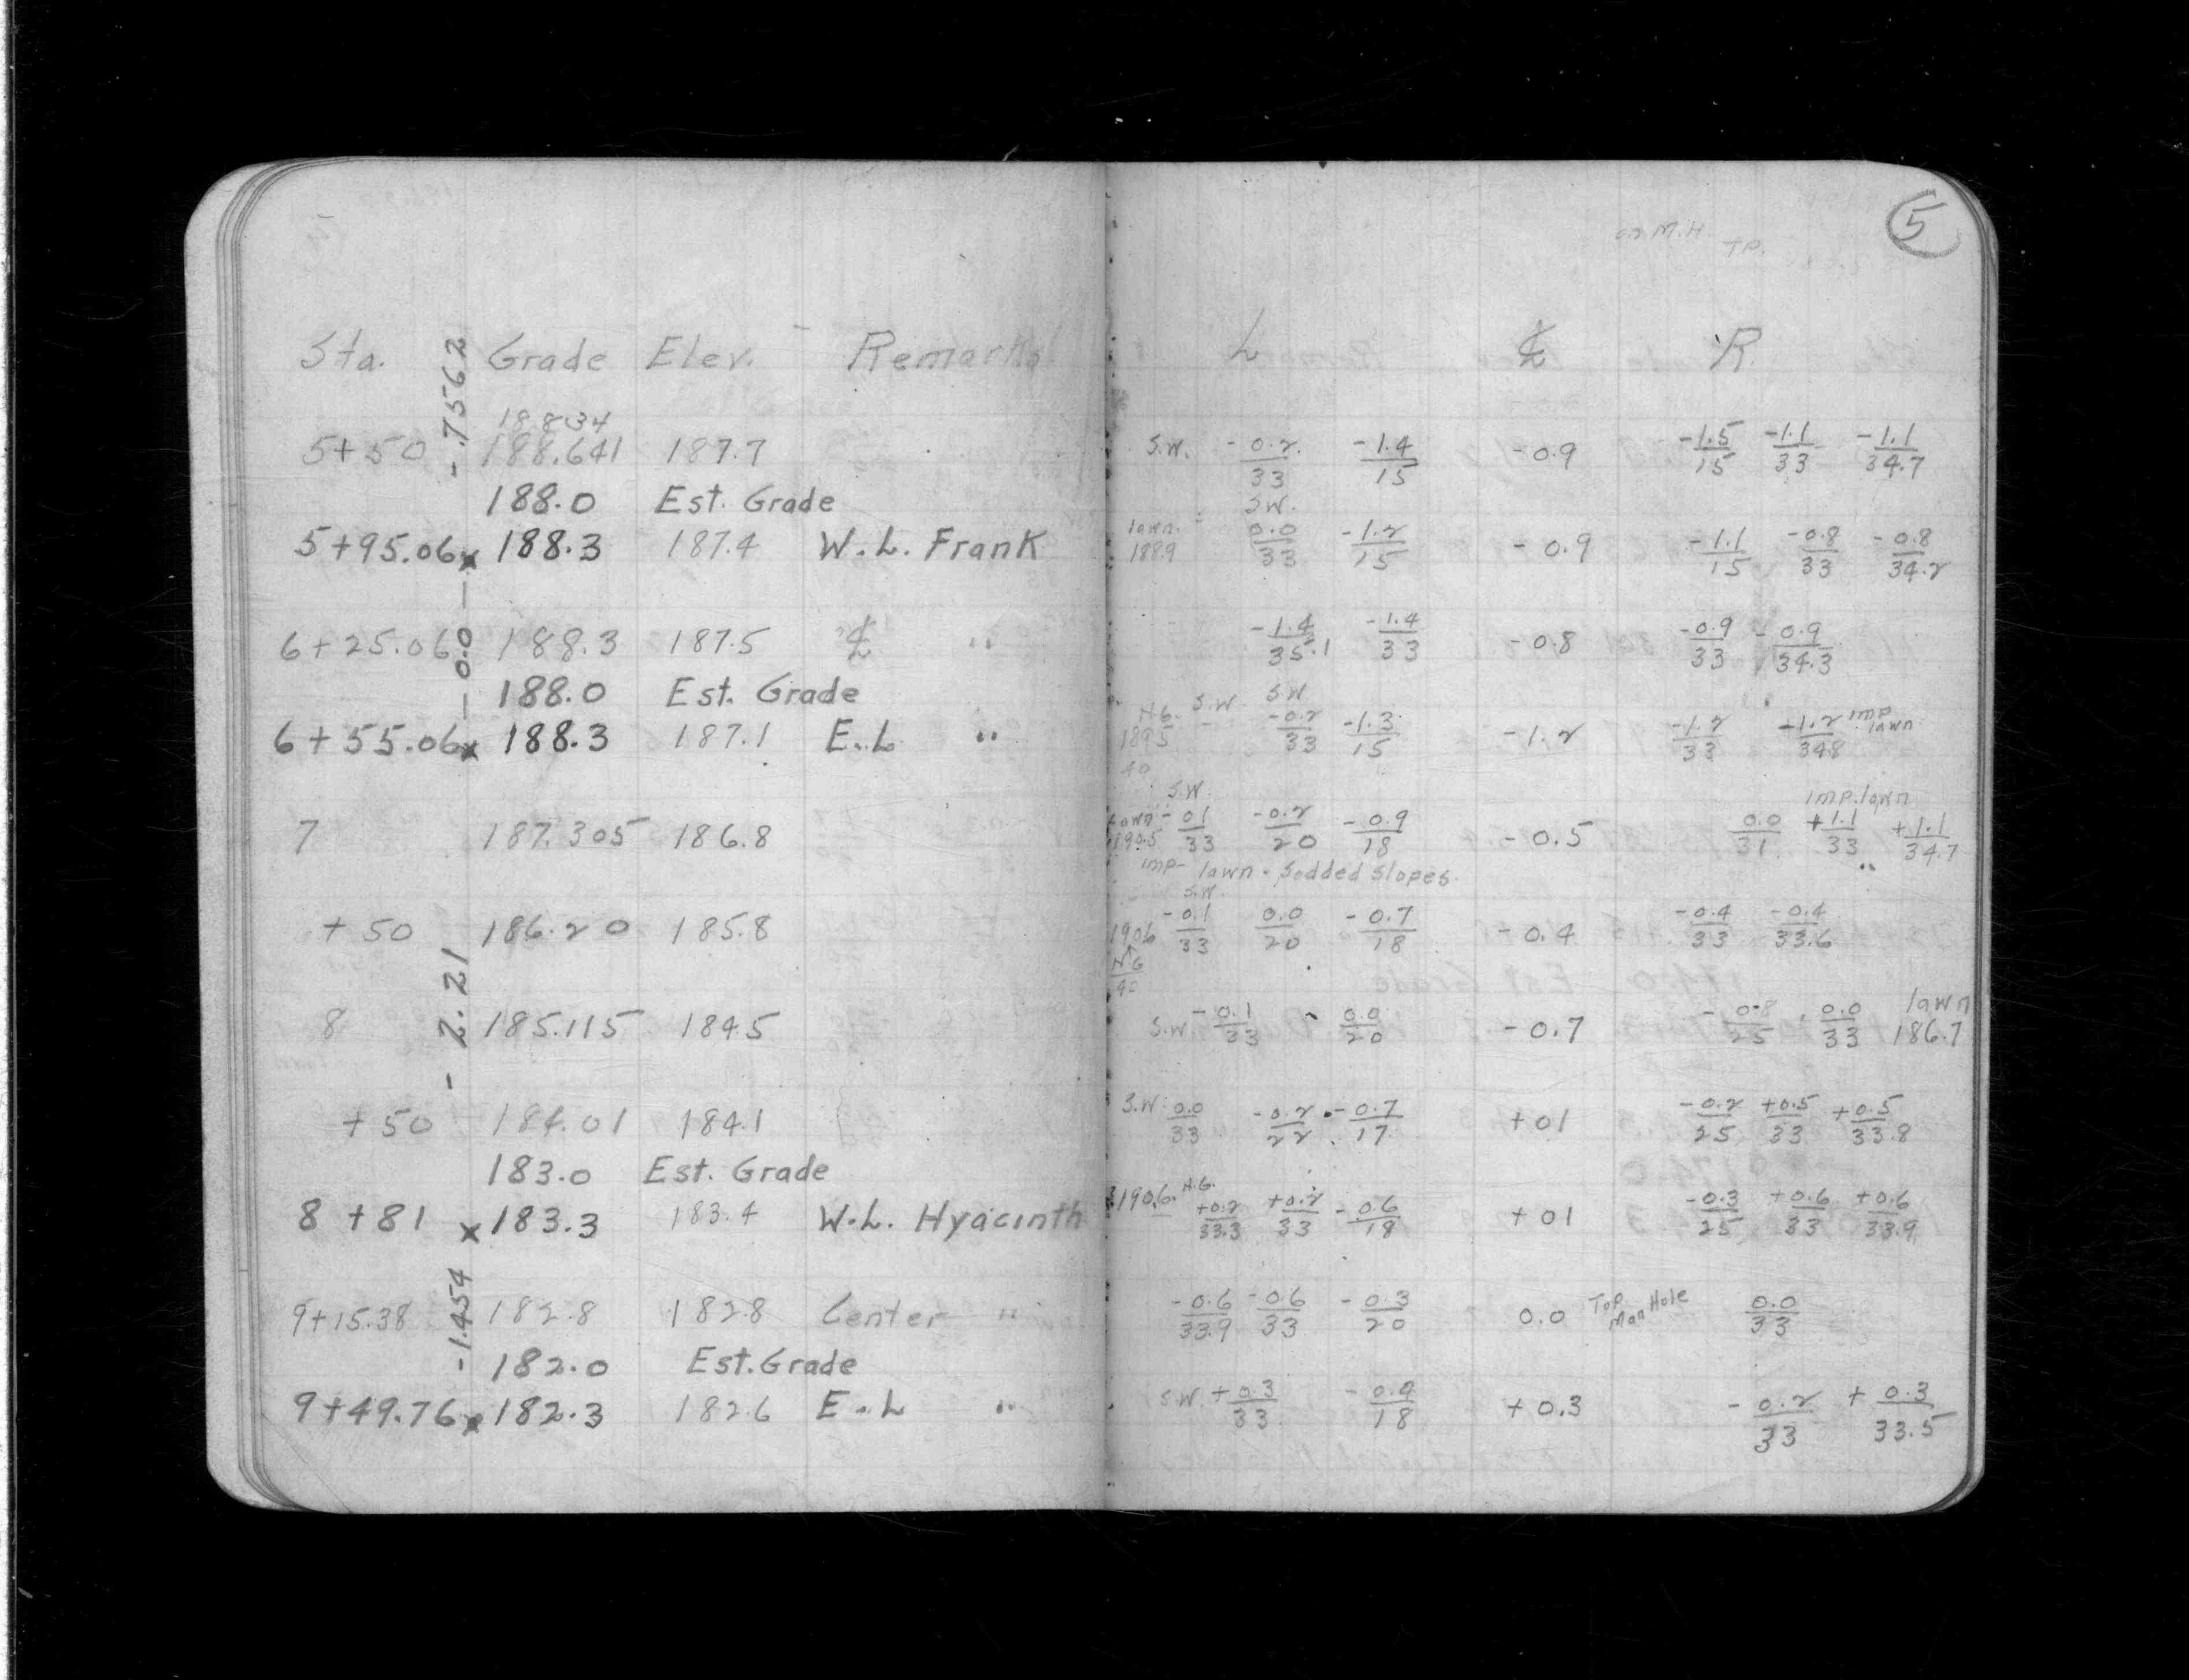 5
on M.H. T.P.
Sta. Grade Elev. Remarks L ℄ R.
-.7562
188.34
5+50 188.641 187.7 S.W. -0.2/33 -1.4/15 -0.9 -1.5/15 -1.1/33 -1.1/34.7
188.0 Est. Grade S.W.
5+95.06 x 188.3 187.4 W.L. Frank lawn 188.9 0.0/33 -1.2/15 -0.9 -1.1/15 -0.8/33 -0.8/34.2
- 0.0 -
6+25.06 188.3 187.5 ℄ " -1.4/35.1 -1.4/33 -0.8 -0.9/33 -0.9/34.3
188.0 Est. Grade S.W. S.W.
6+55.06 x 188.3 187.1 E.L. " 189.5/40 -0.2/33 -1.3/15 -1.2 -1.2/33 -1.2/34.8 imp. lawn
S.W. imp. lawn
7 187.305 186.8 lawn 190.5 -01/33 -0.2/20 -0.9/18 -0.5 0.0/31 +1.1/33 +1.1/34.7
imp- lawn - Sodded Slopes. "
S.W.
+50 186.20 185.8 190.6 -0.1/33 0.0/20 -0.7/18 -0.4 -0.4/33 -0.4/33.6
N.G./40
- 2.21
8 185.115 184.5 S.W. -0.1/33 0.0/20 -0.7 -0.8/25 0.0/33 lawn 186.7
+50 184.01 184.1 S.W. 0.0/33 -0.2/22 -0.7/17 +01 -0.2/25 +0.5/33 +0.5/33.8
183.0 Est. Grade
8+81 x 183.3 183.4 W.L. Hyacinth 190.6. N.G. +0.2/33.3 +0.2/33 -0.6/18 +01 -0.3/25 +0.6/33 +0.6/33.9
-1.454
9+15.38 182.8 182.8 Center " -0.6/33.9 -0.6/33 -0.3/20 0.0 Top Man Hole 0.0/33
182.0 Est. Grade
9+49.76 x 182.3 182.6 E.L " S.W. +0.3/33 -0.9/18 +0.3 -0.2/33 +0.3/33.5